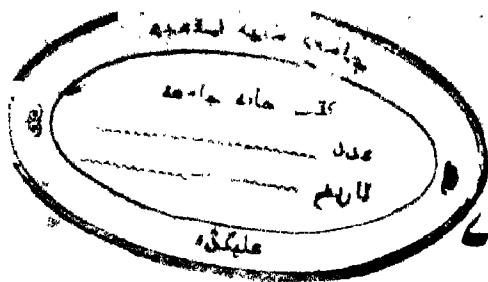 جامعہ ملیہ اسلامیہ
کتب خانہ جامعہ
عدد
تاریخ
علیگڑھ